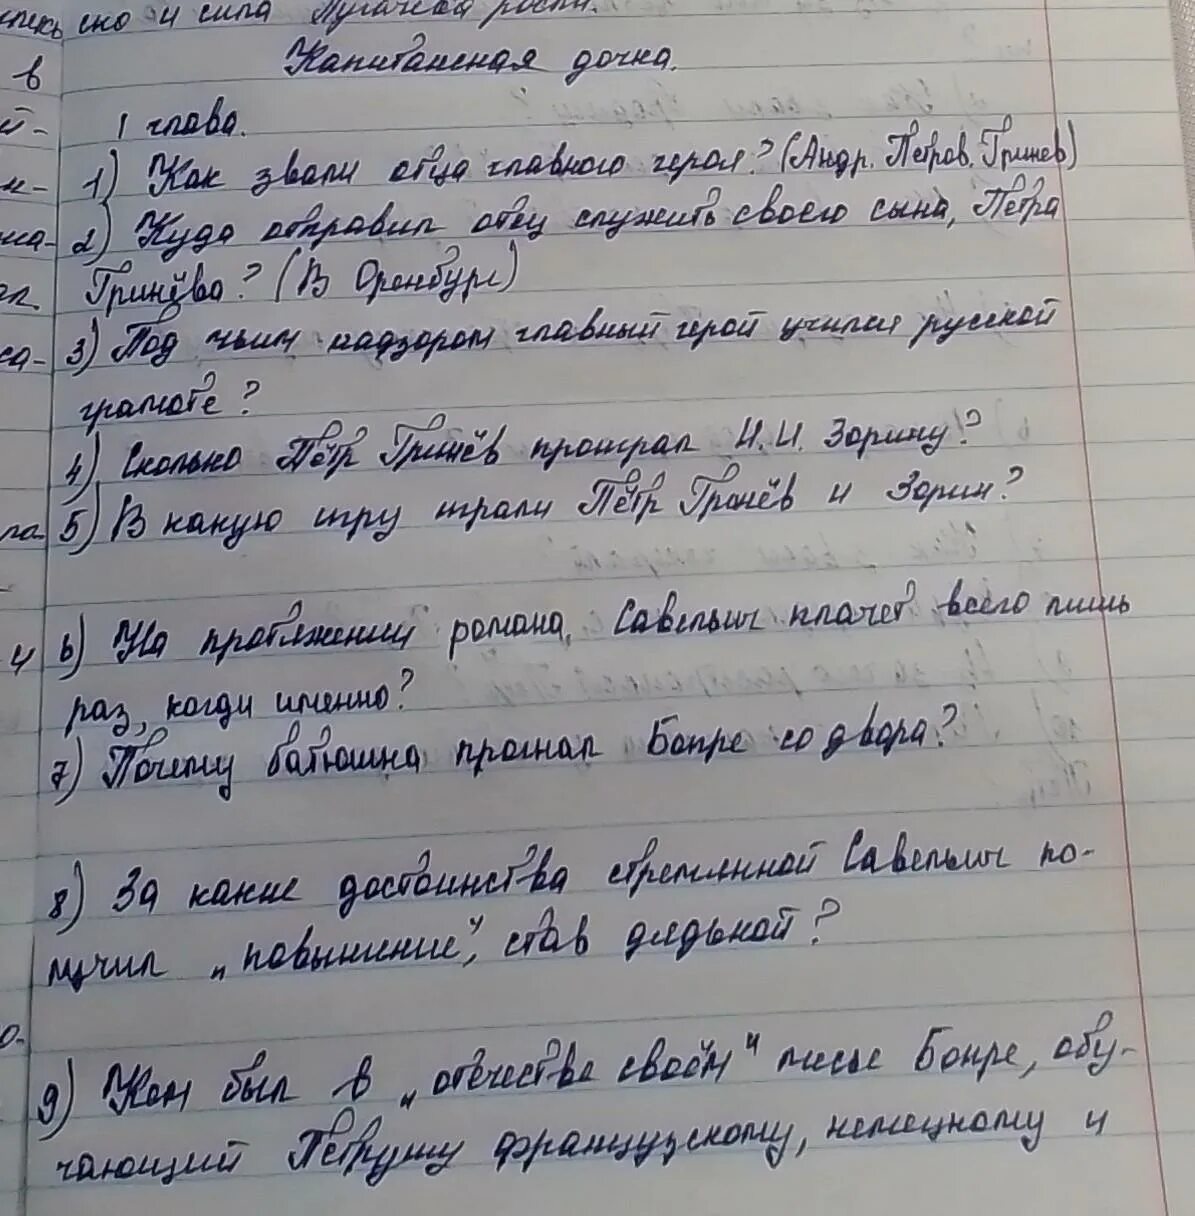 сно и сила Пугачева росли.
Капитанская дочка.
в
1 глава.
1) Как звали отца главного героя? (Андр. Петров. Гринев)
2) Куда отправил отец служить своего сына, Петра
Гринёва? (В Оренбург)
3) Под чьим надзором главный герой учился русской
грамоте?
4) Сколько Пётр Гринёв проиграл И. И. Зорину?
5) В какую игру играли Пётр Гринёв и Зорин?
6) На протяжении романа, Савельич плачет всего лишь
раз, когда именно?
7) Почему батюшка прогнал Бопре со двора?
8) За какие достоинства стремянной Савельич по-
лучил „повышение", став дядькой?
9) Кем был в „отечестве своём" мосье Бопре, обу-
чающий Петрушу французскому, немецкому и